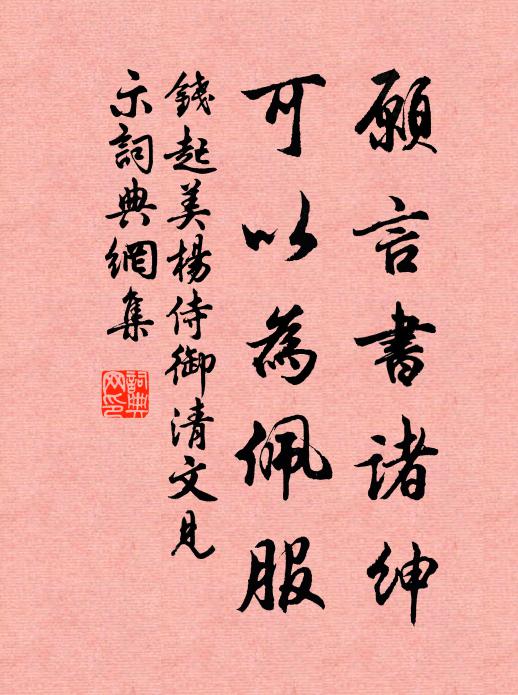 願言書諸紳
可以為佩服
錢起美楊侍御清文見
示詞典網集
詞典
网印